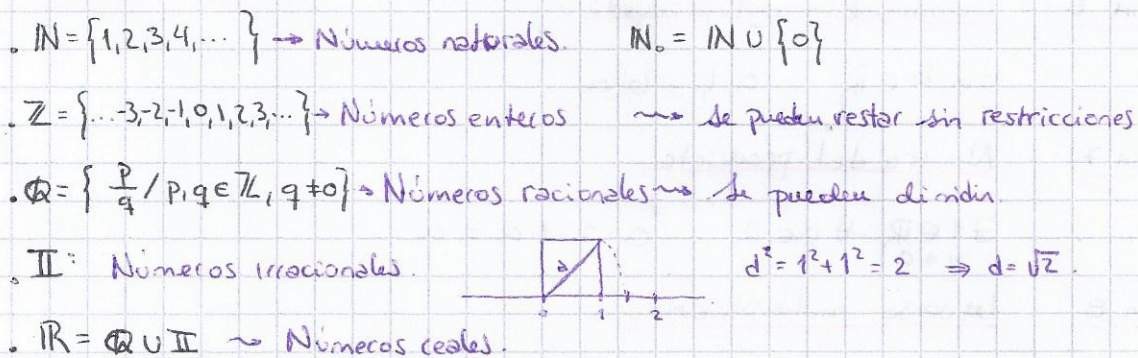 . ℕ = {1, 2, 3, 4, ... } → Números naturales. ℕ₀ = ℕ ∪ {0}
. ℤ = {... -3, -2, -1, 0, 1, 2, 3, ...} → Números enteros ⇝ Se pueden restar sin restricciones
. ℚ = { p/q / p, q ∈ ℤ, q ≠ 0} → Números racionales ⇝ Se pueden dividir.
. 𝕀: Números irracionales. d 0 1 2 d² = 1² + 1² = 2 ⇒ d = √2.
. ℝ = ℚ ∪ 𝕀 ⇝ Números reales.